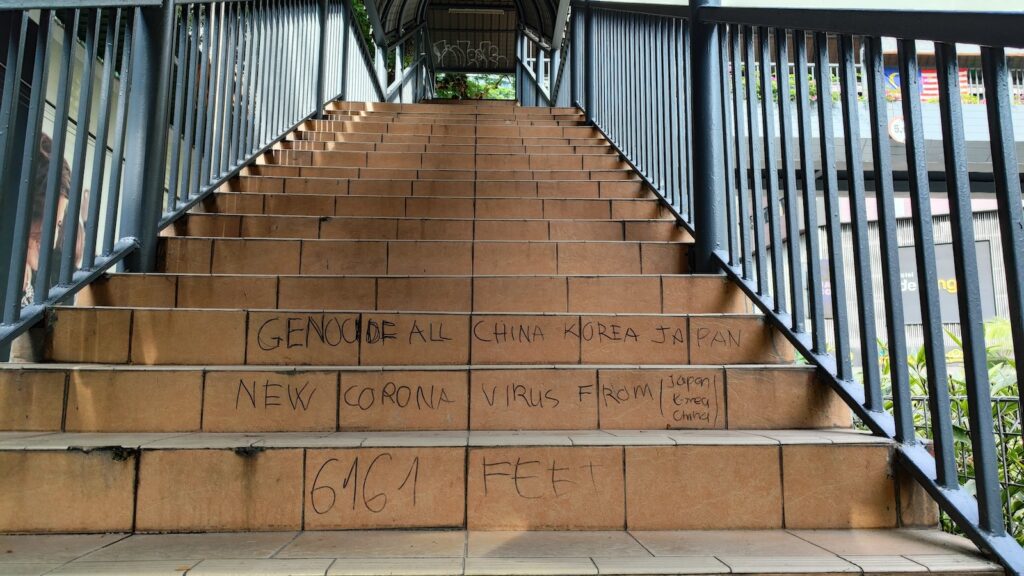 GENOCIDE ALL CHINA KOREA JAPAN
NEW CORONA VIRUS FROM (Japan
Korea
China)
6161 FEET